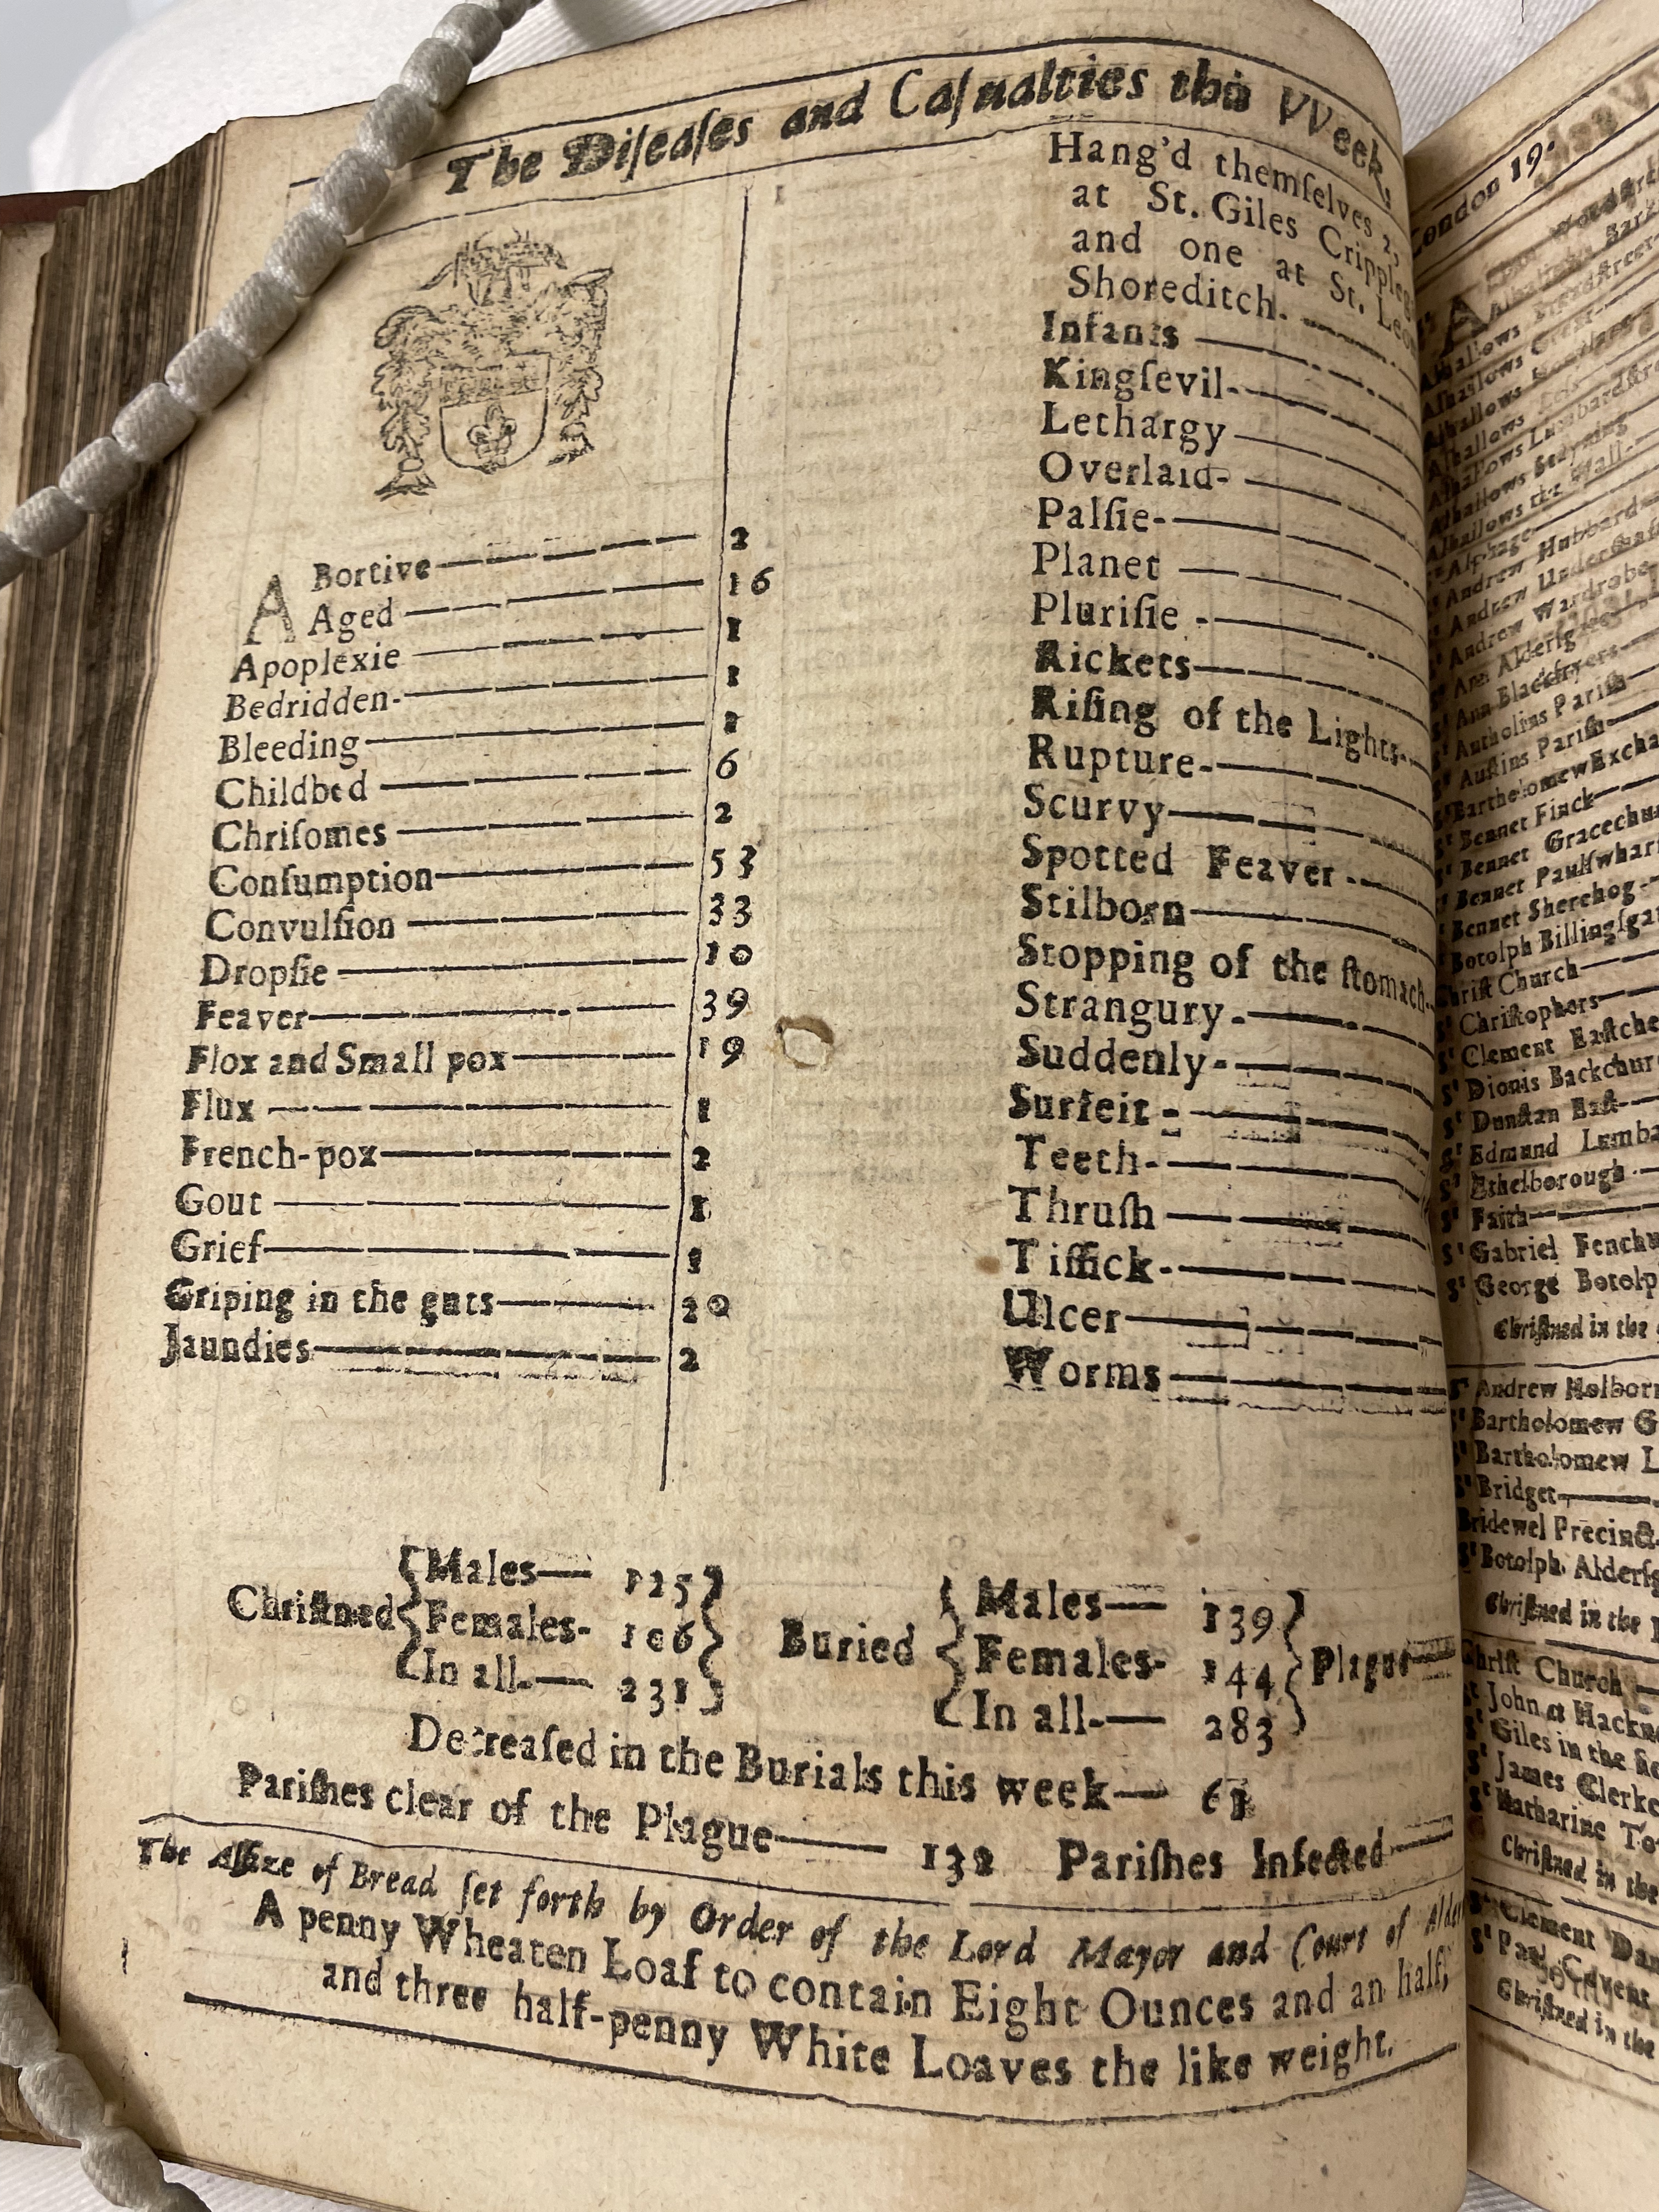 The Diſeaſes and Caſualties this VVeek,
ABortive 2
Aged 16
Apoplexie 1
Bedridden- 1
Bleeding 1
Childbed 6
Chriſomes 2
Conſumption 53
Convulſion 33
Dropſie 10
Feaver 39
Flox and Small pox 19
Flux 1
French-pox 2
Gout 1
Grief 1
Griping in the guts 20
Jaundies 2
Hang'd themſelves 2,
at St. Giles
and one at St.
Shoreditch.
Infants
Kingſevil-
Lethargy
Overlaid-
Palſie-
Planet
Pluriſie -
Rickets
Riſing of the Lights-
Rupture-
Scurvy
Spotted Feaver -
Stilborn
Stopping of the ſtomach-
Strangury-
Suddenly-
Surfeit -
Teeth-
Thruſh
Tiſſick-
Ulcer
Worms
Chriſtned Males— 125
Females- 106
In all-— 231
Buried Males— 139
Females- 144
In all-— 283
Plague
Decreaſed in the Burials this week— 61
Pariſhes clear of the Plague— 132 Pariſhes Infected—
The Aſſize of Bread ſet forth by Order of the Lord Mayor and Court of
A penny Wheaten Loaf to contain Eight Ounces and an half,
and three half-penny White Loaves the like weight.
London 19.
Alhallows
Alhallows
Alhallows
Alhallows
Alhallows Lumbardſtre
Alhallows Stayning
Alhallows the Wall-
St Alphage
St Andrew Hubbard
St Andrew Underſhaf
St Andrew Wardrobe
St Ann Alderſg
St Ann Blackfryers
St Antholins Pariſh
St Auſtins Pariſh
St Bartholomew Excha
St Bennet Finck
St Bennet Gracechu
St Bennet Paulſwhar
St Bennet Sherehog-
St Botolph Billingſga
Chriſt Church
St Chriſtophers
St Clement Eaſtche
St Dionis Backchur
St Dunſtan Eaſt
St Edmund Lumba
St Ethelborough
St Faith
St Gabriel Fenchu
St George Botolp
Chriſtned in the
St Andrew Holborn
St Bartholomew G
St Bartholomew L
St Bridget
Bridewel Precinct
St Botolph Alderſg
Chriſtned in the
Chriſt Church
St John at Hackn
St Giles in the
St James Clerke
St Katharine To
Chriſtned in the
St Clement Dan
St Paul Covent
Chriſtned in the